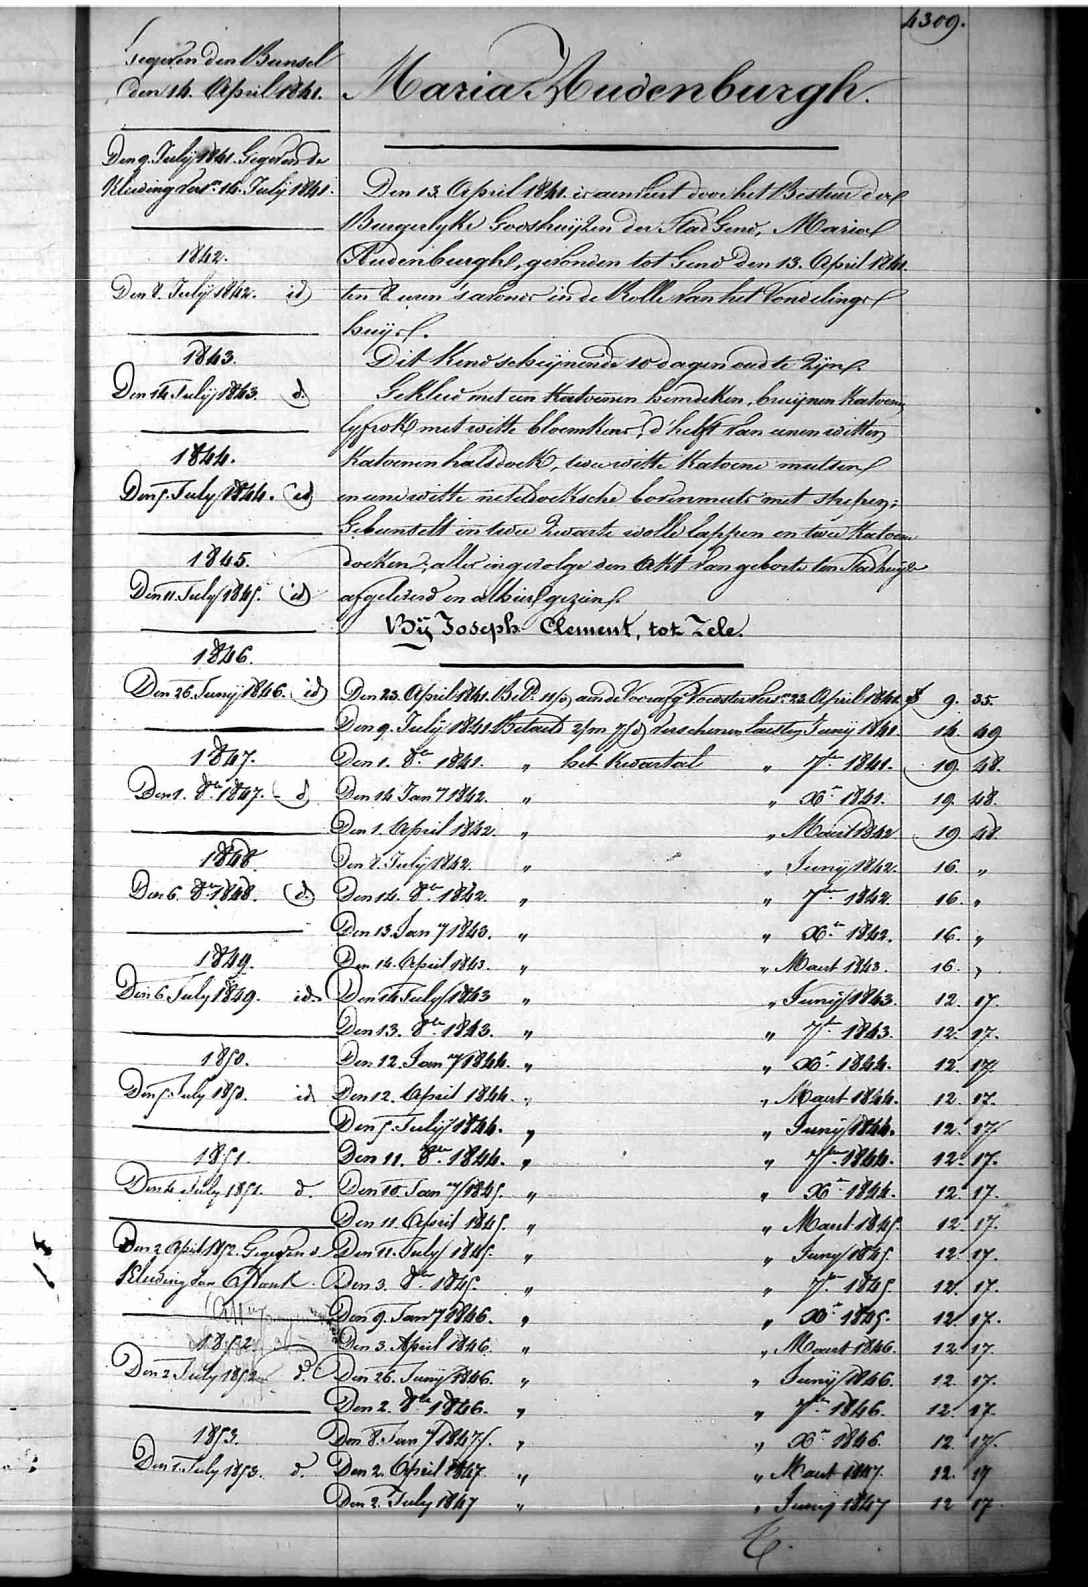 4309.
Gegeven den Bunsel
den 14. April 1841.
Maria Audenburgh.
Den 9. Julij 1841. Gegeven de
Kleeding Vers.n 16. July 1841.
1842.
Den 8. Julij 1842. id
1843.
Den 14 Julij 1843. id.
1844.
Den 5. July 1844. id
1845.
Den 11. July 1845. id
1846.
Den 26. Junij 1846. id
1847.
Den 1. 8.er 1847. id
1848.
Den 6. 8.er 1848. id.
1849.
Den 6. July 1849. id.
1850.
Den 5. July 1850. id
1851.
Den 4. July 1851. id.
Den 2 April 1852. Gegeven de
Kleeding
1852
Den 2 July 1852 id.
1853.
Den 1. July 1853. id.
Den 13. April 1841. is aenveert door het Bestuer der
Burgerlyke Godshuijzen der Stad Gend, Maria
Audenburgh, gevonden tot Gend den 13. April 1841.
ten 8 uren 's avonds in de Rolle van het Vondelings
huijs.
Dit Kind schijnende 10 dagen oud te zijn.
Gekleed met een Katoenen hemdeken, bruijnen Katoenen
lyfrok met witte bloemkens, d'helft van eenen witten
Katoenen halsdoek, twee witte Katoene mutsen
en eene witte neteldoeksche bovenmuts met strepen;
Gebunselt in twee Zwarte wolle lappen en twee Katoene
doeken, alles ingevolge den Akt van geborte ten Stadhuijze
afgeleverd en alhier gezien.
Bij Joseph Clement, tot Zele.
Den 23. April 1841. Bet.d aen de Voorafg. Voedster Vers.n 23. April 1841. 9. 35.
Den 9. July 1841 Betaelt 2/m verschenen laetsten Junij 1841. 14 49
Den 1. 8.er 1841. " het Kwartael " 7.ber 1841. 19. 48.
Den 14 Jan.y 1842. " " X.er 1841. 19. 48.
Den 1. April 1842. " " Maert 1842 19 48.
Den 8. Julij 1842. " " Junij 1842. 16. "
Den 14. 8.er 1842. " " 7.ber 1842. 16. "
Den 13. Jan.y 1843. " " X.er 1842. 16. "
Den 14. April 1843. " " Maert 1843. 16. "
Den 14 July 1843 " " Junij 1843. 12. 17.
Den 13. 8.er 1843. " " 7.ber 1843. 12. 17.
Den 12. Jan.y 1844. " " X.er 1844. 12. 17
Den 12. April 1844. " " Maert 1844. 12. 17.
Den 5. July 1844. " " Junij 1844. 12. 17
Den 11. 8.er 1844. " " 7.ber 1844. 12. 17.
Den 10. Jan.y 1845. " " X.er 1844. 12. 17.
Den 11. April 1845. " " Maert 1845. 12. 17.
Den 11. July 1845. " " Juny 1845. 12. 17.
Den 3. 8.er 1845. " " 7.ber 1845 12. 17.
Den 9. Jan.y 1846. " " X.er 1845. 12. 17.
Den 3. April 1846. " " Maert 1846. 12 17.
Den 26. Junij 1846. " " Junij 1846. 12. 17.
Den 2. 8.er 1846. " " 7.ber 1846. 12. 17.
Den 8. Jan.y 1847. " " X.er 1846. 12 17.
Den 2. April 1847. " " Maert 1847. 12. 17
Den 2. July 1847 " " Junij 1847 12 17.